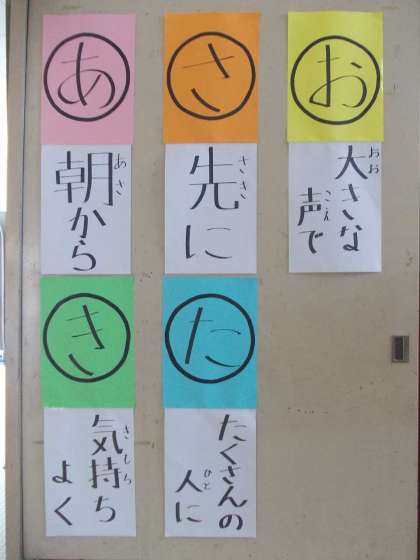 あ
朝から
あさ
さ
先に
さき
お
大きな
おお
声で
こえ
き
気持ち
よく
た
たくさんの
人に
ひと